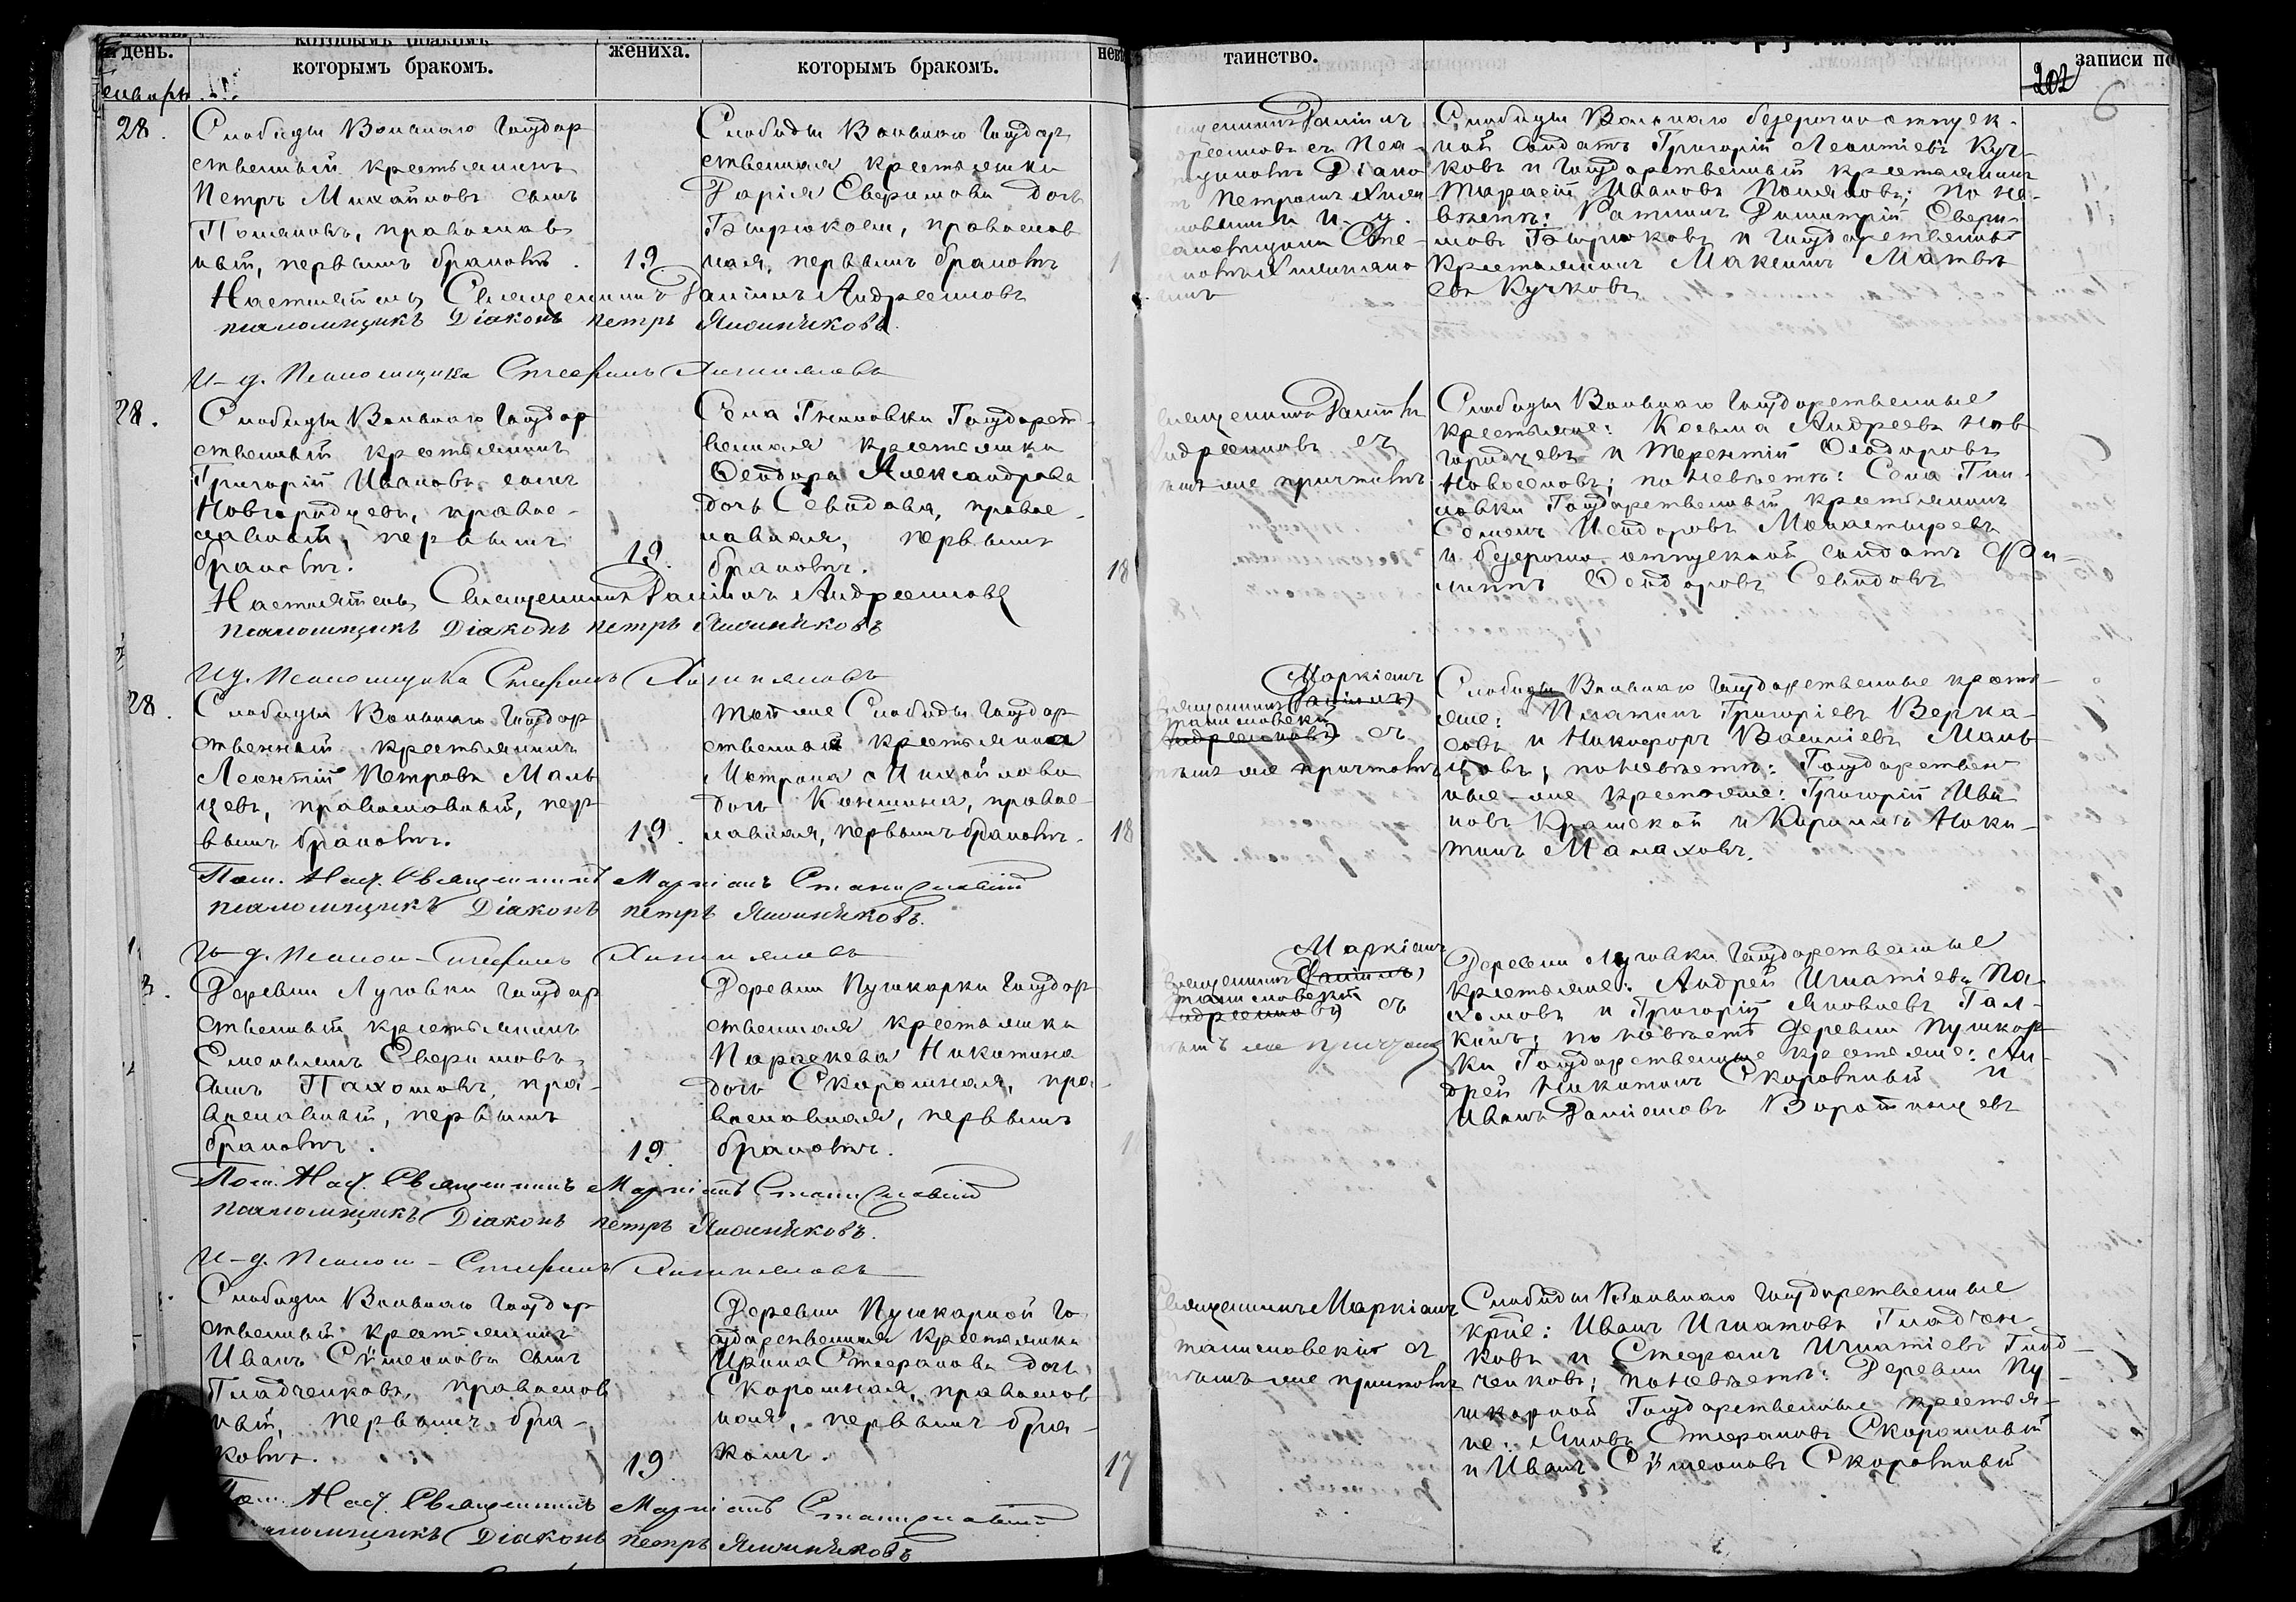 день.
которымъ бракомъ.
жениха.
которымъ бракомъ.
таинство.
записи по
202
6
28.
Слободы Вольнаго Государ
ственный крестьянинъ
Петръ Михайловъ сынъ
Поляковъ, православ
ный, первымъ бракомъ.
19
Слободы Вольнаго Государ
ственная крестьянка
Дарія Евфимова дочь
Бирюкова, православ
ная, первымъ бракомъ
Слободы Вольнаго безсрочно отпуск
ной солдатъ Григорій Леонтіевъ Куч-
ковъ и Государственный крестьянинъ
Тарасій Ивановъ Поляковъ; по не-
вѣстѣ: Димитрій Евфи-
мовъ Бирюковъ и Государственный
крестьянинъ Максимъ Матвѣ
евъ Кучковъ
Настоятель Священникъ Даміанъ Андреенковъ
псаломщикъ Діаконъ Петръ
И. д. Псаломщика Стефанъ
28.
Слободы Вольнаго Государ
ственный крестьянинъ
Григорій Ивановъ сынъ
Новгородцевъ, правос-
лавный, первымъ
бракомъ.
19.
Села Гниловки Государст-
венная крестьянка
Ѳеодора Александрова
дочь Севидова, правос-
лавная, первымъ
бракомъ.
18
священникъ Даміанъ
Андреенковъ съ
тѣмъ же причтомъ
Слободы Вольнаго Государственные
крестьяне: Косьма Андреевъ Нов
городцевъ и Терентій Ѳеодоровъ
Новоселовъ; по невѣстѣ: Села Гни-
ловки Государственный крестьянинъ
Семенъ Исидоровъ Монастыревъ
и безсрочно отпускной солдатъ Фи-
липпъ Ѳеодоровъ Севидовъ
Настоятель Священникъ Даміанъ Андреенковъ
псаломщикъ Діаконъ Петръ
И. д. Псаломщика Стефанъ
28.
Слободы Вольнаго Государ
ственный крестьянинъ
Леонтій Петровъ Маль
цевъ, православный, пер-
вымъ бракомъ.
19.
той же Слободы Государ
ственная крестьянка
Матрона Михайлова
дочь Коншина, правос-
лавная, первымъ бракомъ.
18
Маркіанъ
съ
тѣмъ же причтомъ
Слободы Вольнаго Государственные крестья-
яне: Платонъ Григоріевъ Верка-
совъ и Никифоръ Василіевъ Маль-
цовъ; по невѣстѣ: Государствен
ные-же крестьяне: Григорій Ива
новъ и Кириллъ Ники-
тинъ Малаховъ.
Пом. Наст. Священникъ Маркіанъ Станиславскій
псаломщикъ Діаконъ Петръ
И. д. Псалом. Стефанъ
Деревни Луговки Государ
ственный крестьянинъ
Емельянъ Евфимовъ
сынъ Пахомовъ, пра-
вославный, первымъ
бракомъ.
19.
Деревни Пушкарки Государ
ственная крестьянка
Параскева Никитина
дочь Скоромная, пра-
вославная, первымъ
бракомъ.
Маркіанъ
съ
тѣмъ же причтомъ
Деревни Луговки Государственные
крестьяне: Андрей Игнатіевъ Па-
хомовъ и Григорій Яковлевъ Гал-
кинъ; по невѣстѣ деревни Пушкар-
ки Государственные крестьяне: Ан-
дрей Никитинъ Скоромный и
Иванъ Даміановъ Воротынцевъ
Пом. Наст. Священникъ Маркіанъ Станиславскій
псаломщикъ Діаконъ Петръ
И. д. Псалом. Стефанъ
Слободы Вольнаго Государ
ственный крестьянинъ
Иванъ Сѵмеоновъ сынъ
Гладченковъ, православ
ный, первымъ бра-
комъ.
19
Деревни Пушкарной Го
сударственная крестьянка
Ирина Стефанова дочь
Скоромная, православ
ная, первымъ бра-
комъ.
17
Священникъ Маркіанъ
Станиславскій съ
тѣмъ же причтомъ
Слободы Вольнаго Государственные
кр-не: Иванъ Игнатовъ Гладчен
ковъ и Стефанъ Игнатіевъ Глад-
ченковъ; по невѣстѣ: Деревни Пу-
шкарной Государственные крестья-
не: Яковъ Стефановъ Скоромный
и Иванъ Сѵмеоновъ Скоромный
Пом. Наст. Священникъ Маркіанъ Станиславскій
псаломщикъ Діаконъ Петръ